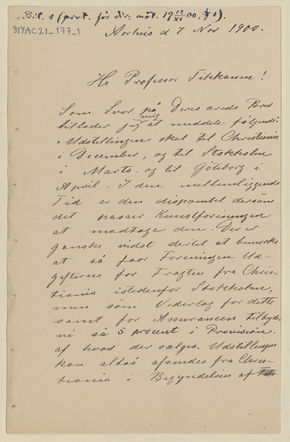 Bil. 1 (prot. för dir. möt. 19 12/XI 00, § 1).
SMAC21_197_1
Aarhus d 7 Nov 1900.
Hr Professor Tikkanen!
Som Svar på Deres ærede Brev
tillader jeg mig at meddele følgende
Udstillingen skal til Christiania
i December, og til Stokholm
i Marts og til Göteborg i
April. I den mellemliggende
Tid er den disponibel dersom
det passer Kunstforeningen
at modtage den. Der er
ganske vidst dertil at bemærke
at så faar Foreningen Ud-
gifterne for Fragten fra Chris-
tiania istedenfor Stokholm,
men som Vederlag for dette
samt for Assurancen tilbyder
vi så 5 procent i Provision
af hvad der sælges. Udstillingen
kan altså afsendes fra Chris-
tiania i Begyndelsen af